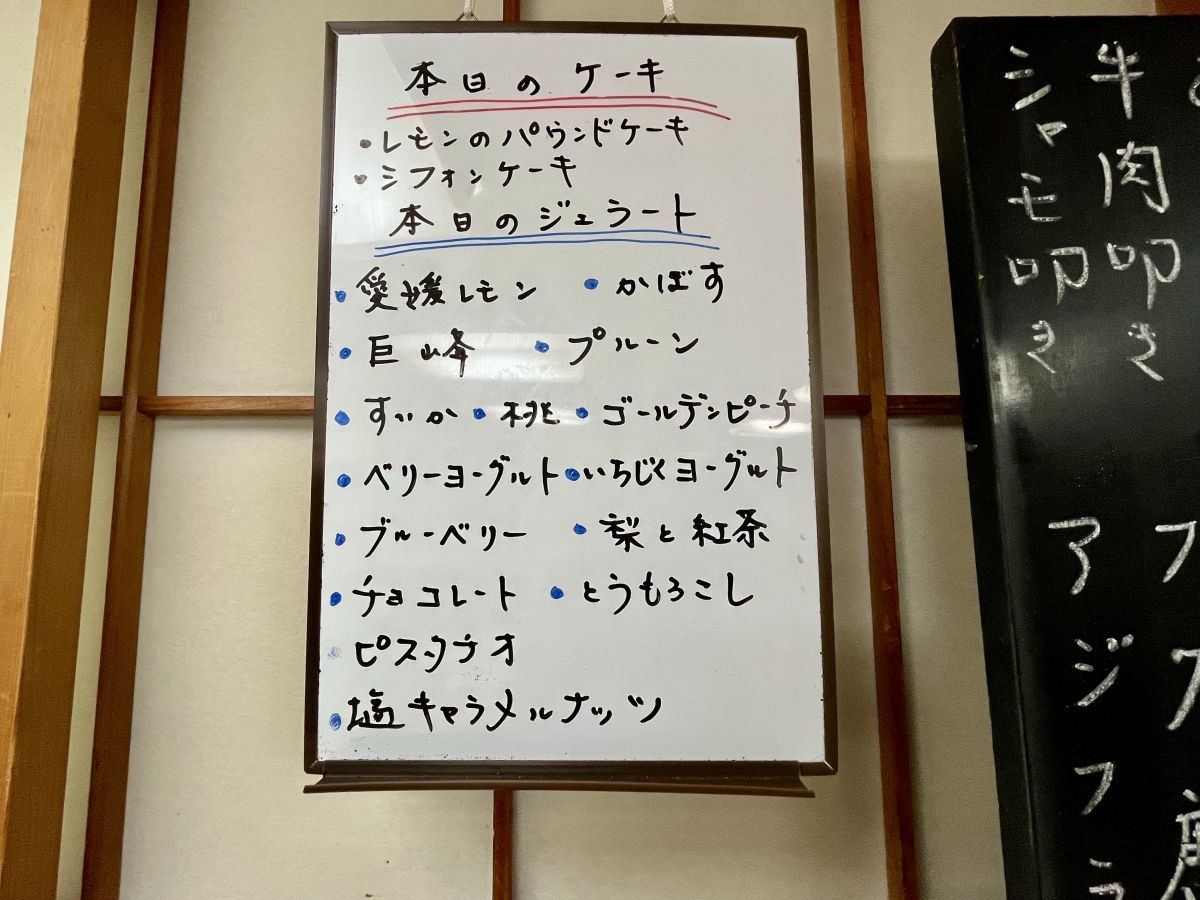 本日のケーキ
・レモンのパウンドケーキ
・シフォンケーキ
本日のジェラート
・愛媛レモン ・かぼす
・巨峰 ・プルーン
・すいか ・桃 ・ゴールデンピーチ
・ベリーヨーグルト ・いちじくヨーグルト
・ブルーベリー ・梨と紅茶
・チョコレート ・とうもろこし
・ピスタチオ
・塩キャラメルナッツ
牛肉叩き
シャモ叩き
アジフラ